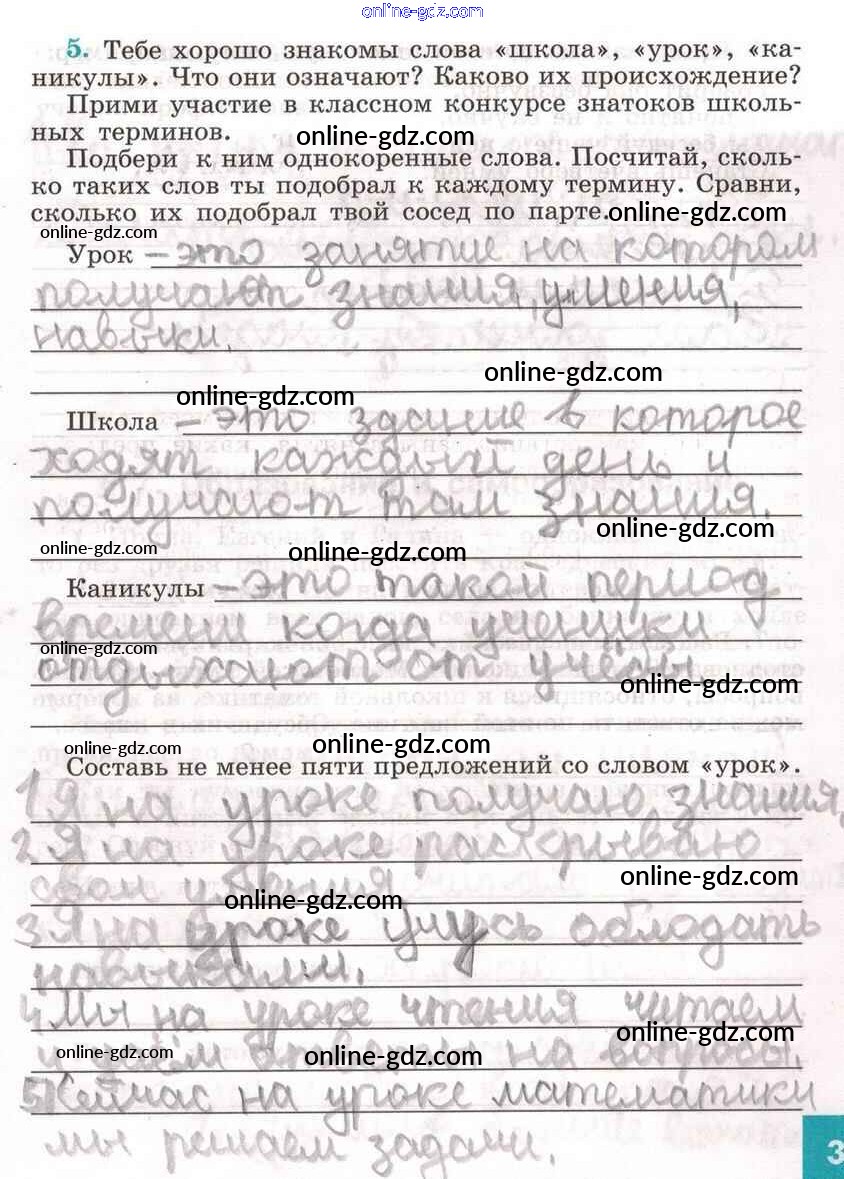 online-gdz.com
5. Тебе хорошо знакомы слова «школа», «урок», «ка-
никулы». Что они означают? Каково их происхождение?
Прими участие в классном конкурсе знатоков школь-
ных терминов.
online-gdz.com
Подбери к ним однокоренные слова. Посчитай, сколь-
ко таких слов ты подобрал к каждому термину. Сравни,
сколько их подобрал твой сосед по парте.
online-gdz.com
online-gdz.com
Урок – это занятие на котором
получают знания, умения,
навыки.
online-gdz.com
online-gdz.com
Школа – это здание в которое
ходят каждый день и
получают там знания.
online-gdz.com
online-gdz.com
online-gdz.com
Каникулы – это такой период
времени когда ученики
online-gdz.com
отдыхают от учёбы
online-gdz.com
online-gdz.com
online-gdz.com
Составь не менее пяти предложений со словом «урок».
1. Я на уроке получаю знания,
2. Я на уроке раскрываю
online-gdz.com
свои умения
online-gdz.com
3. Я на уроке учусь обладать
навыками.
4. Мы на уроке чтения читаем
online-gdz.com
и даём ответы на вопросы.
online-gdz.com
online-gdz.com
5. Сейчас на уроке математики
мы решаем задачи.
3